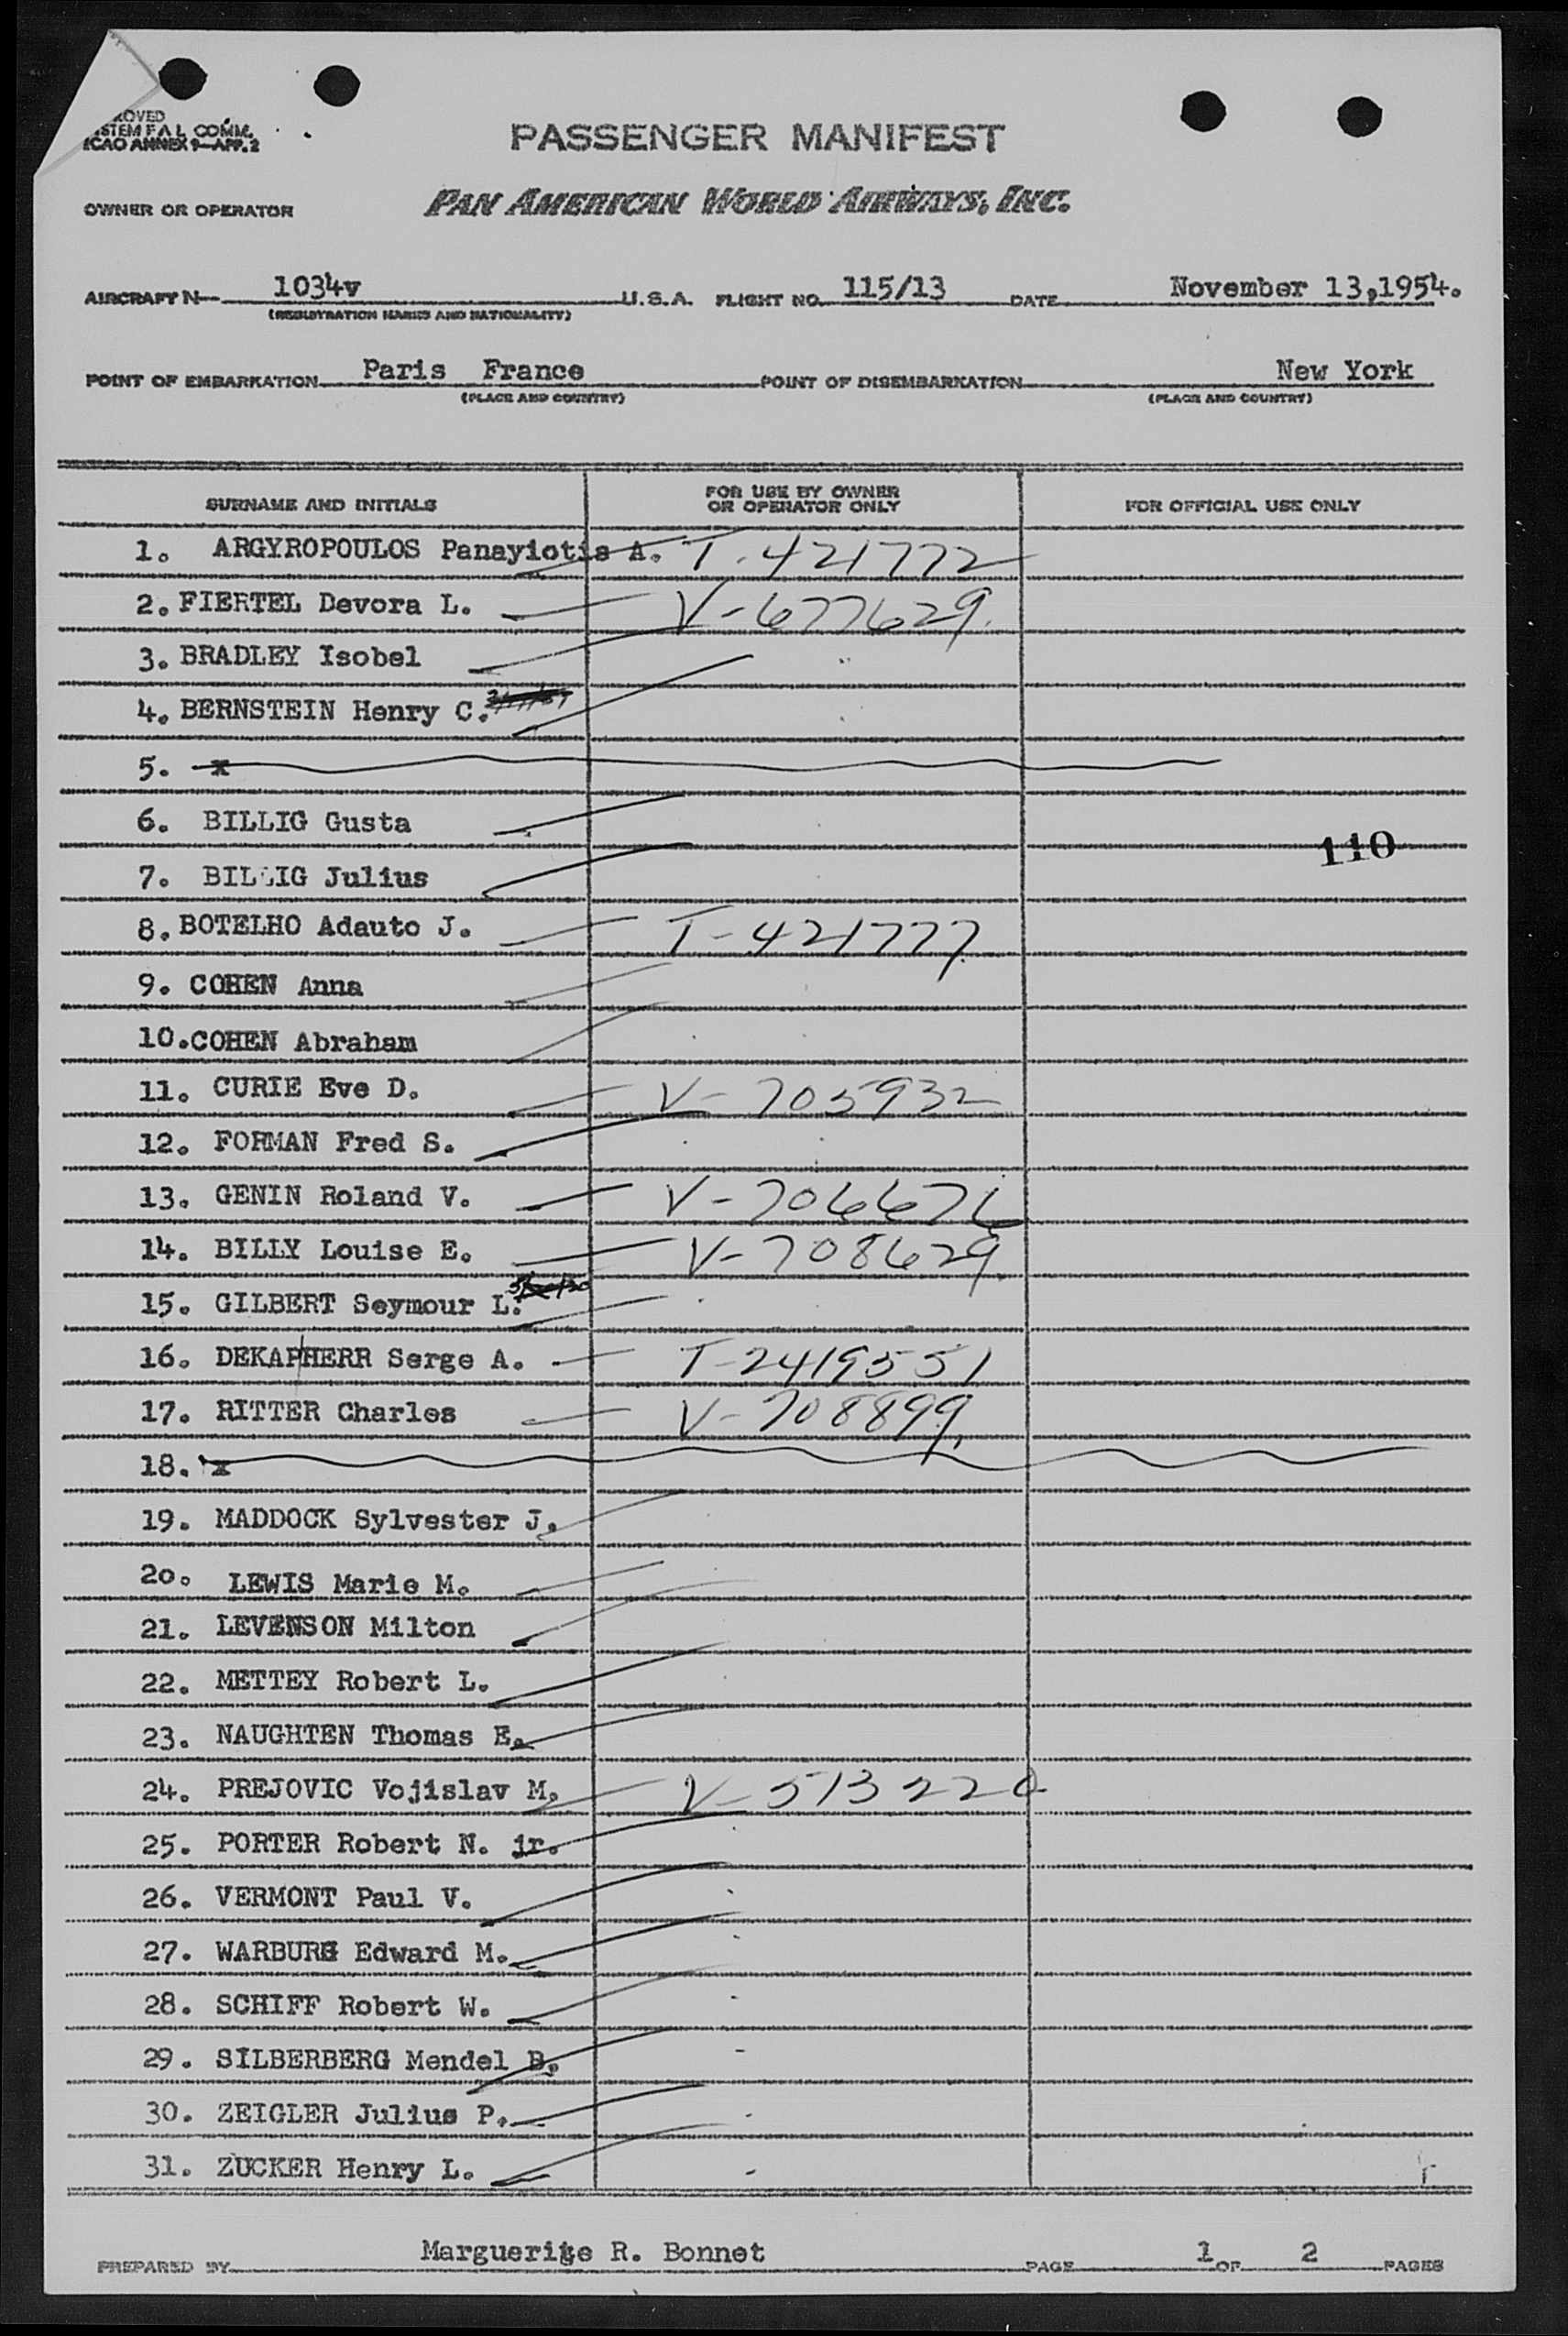 ROVED
STEM F A L COMM.
ICAO ANNEX 9—APP. 2
PASSENGER MANIFEST
OWNER OR OPERATOR PAN AMERICAN WORLD AIRWAYS, INC.
AIRCRAFT N— 1034v U.S.A. FLIGHT NO. 115/13 DATE November 13,1954.
(REGISTRATION MARKS AND NATIONALITY)
POINT OF EMBARKATION Paris France POINT OF DISEMBARKATION New York
(PLACE AND COUNTRY) (PLACE AND COUNTRY)
SURNAME AND INITIALS FOR USE BY OWNER OR OPERATOR ONLY FOR OFFICIAL USE ONLY
1. ARGYROPOULOS Panayiotis A. T-421772
2. FIERTEL Devora L. V-677629.
3. BRADLEY Isobel
4. BERNSTEIN Henry C.
5. x
6. BILLIG Gusta
110
7. BILLIG Julius
8. BOTELHO Adauto J. T-421777
9. COHEN Anna
10. COHEN Abraham
11. CURIE Eve D. V-705932
12. FORMAN Fred S.
13. GENIN Roland V. V-706676
14. BILLY Louise E. V-708629
15. GILBERT Seymour L.
16. DEKAPHERR Serge A. T-2419551
17. RITTER Charles V-708899
18. x
19. MADDOCK Sylvester J.
20. LEWIS Marie M.
21. LEVENSON Milton
22. METTEY Robert L.
23. NAUGHTEN Thomas E.
24. PREJOVIC Vojislav M. V-513220
25. PORTER Robert N. jr.
26. VERMONT Paul V.
27. WARBURG Edward M.
28. SCHIFF Robert W.
29. SILBERBERG Mendel B.
30. ZEIGLER Julius P.
31. ZUCKER Henry L.
PREPARED BY Marguerite R. Bonnet PAGE 1 OF 2 PAGES